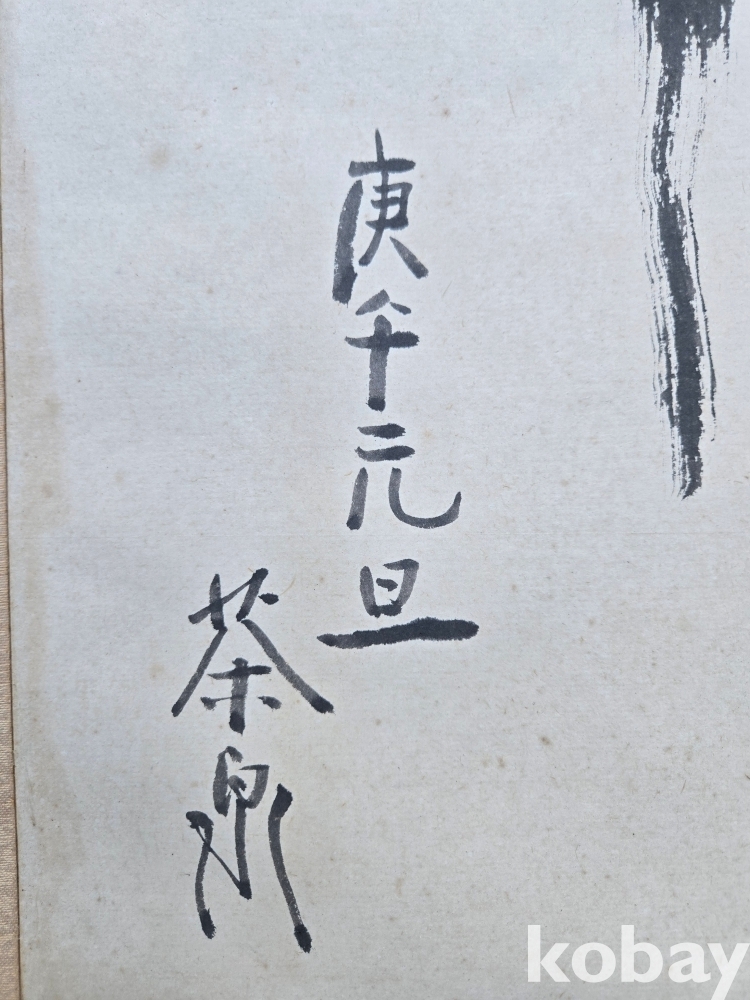 庚午元旦
茶泉
kobay